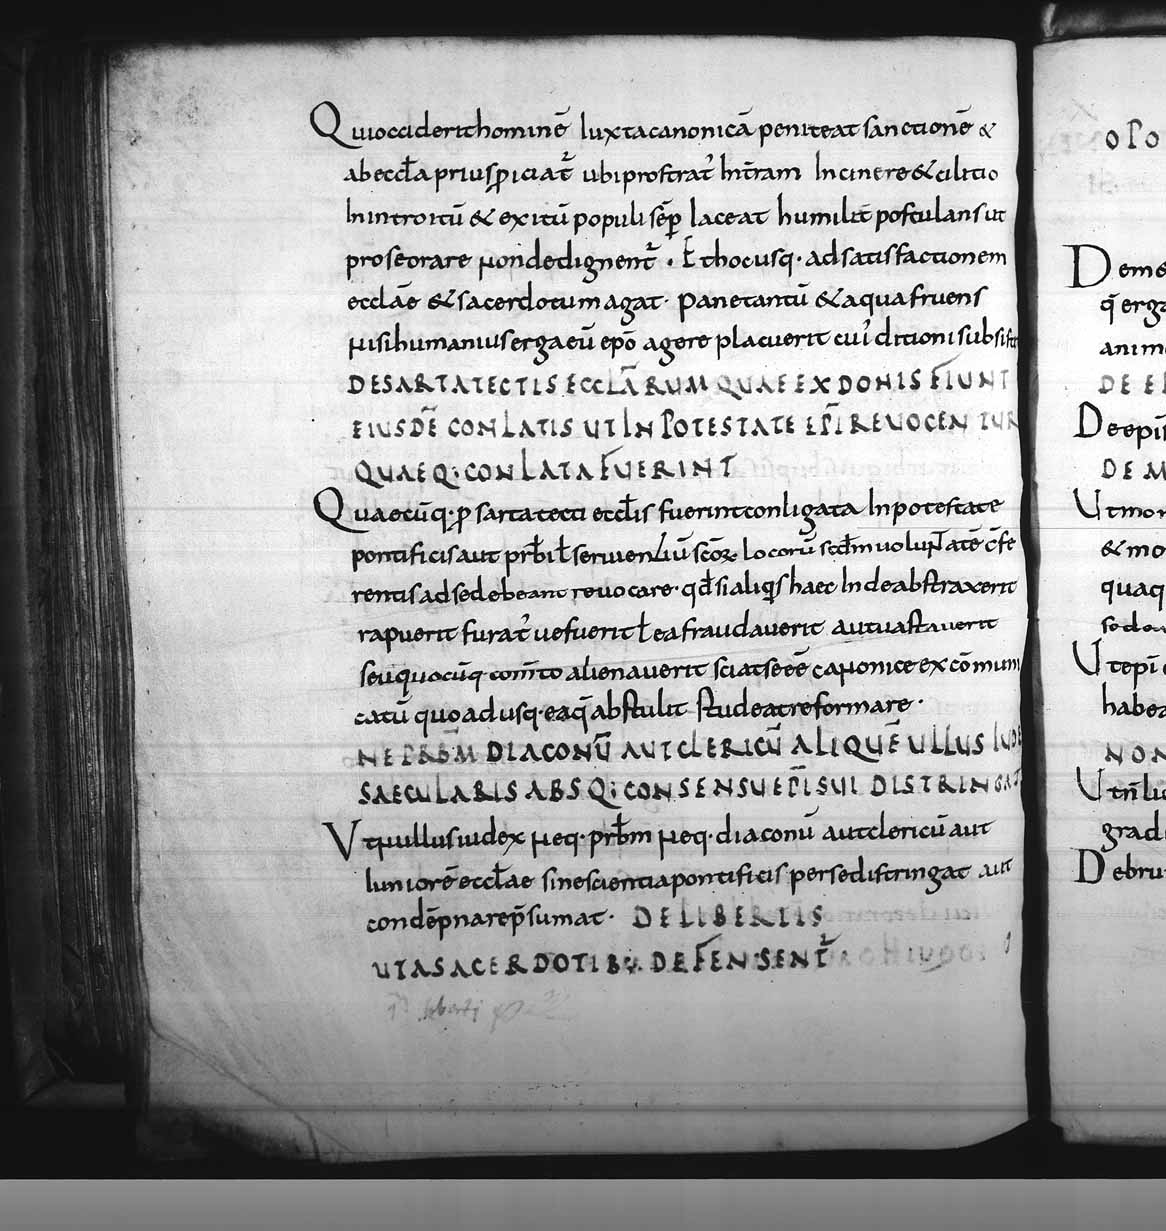 Qui occiderit hominē Iuxta canonicā peniteat sanctionē &
ab eccl̄a prius p̄iciat᷑ ubi prostrat᷑ In t̄ram In cinere & cilitio
In introitū & exitū populi sēp Iaceat humilit̄ postulans ut
pro se orare non dedignent᷑ · Et hoc usq· ad satisfactionem
eccl̄ae & sacerdotum agat· pane tantū & aqua fruens
nisi humanius erga eū ep̄o agere placuerit cui᷑ ditioni subsist
DE SARTATECTIS ECCLĀRUM QUAE EX DONIS FIUNT
EIUSDĒ CONLATIS UT IN POTESTATE EP̄I REVOCENTUR
QUAEQ· CONLATA FUERINT
Quaecūq· p̄ sartatecta eccl̄is fuerint conligata In potestate
pontificis aut prb̄i ł seruientiū sc̄oꝝ locorū scd̄m uoluntatē c̄fe
rentis ad se debeant reuocare· qd̄ si aliq̄s haec Inde abstraxerit
rapuerit furat᷑ ue fuerit ł ea fraudauerit aut uastauerit
seu quocūq· com̄to alienauerit sciat se eē canonice excōmuni
catū quoadusq· ea q̄ abstulit studeat reformare ·
NE PRB̄M DIACONŪ AUT CLERICŪ ALIQUĒ ULLUS IUDE
SAECULARIS ABSQ· CONSENSU EP̄I SUI DISTRINGAT
Vt nullus iudex neq· prb̄m neq· diaconū aut clericū aut
Iuniorē eccl̄ae sine scientia pontificis per se distringat aut
condēpnare p̄sumat· DE LIBERTIS
UT A SACERDOTIBU· DEFENSENT᷑
OPO
Dem
q̄ erga
anim
DE E
De epi
DE M
Ut mon
& mo
quaq
Ut ep̄i
habea
NON
Ut n̄l
gradu
Debru